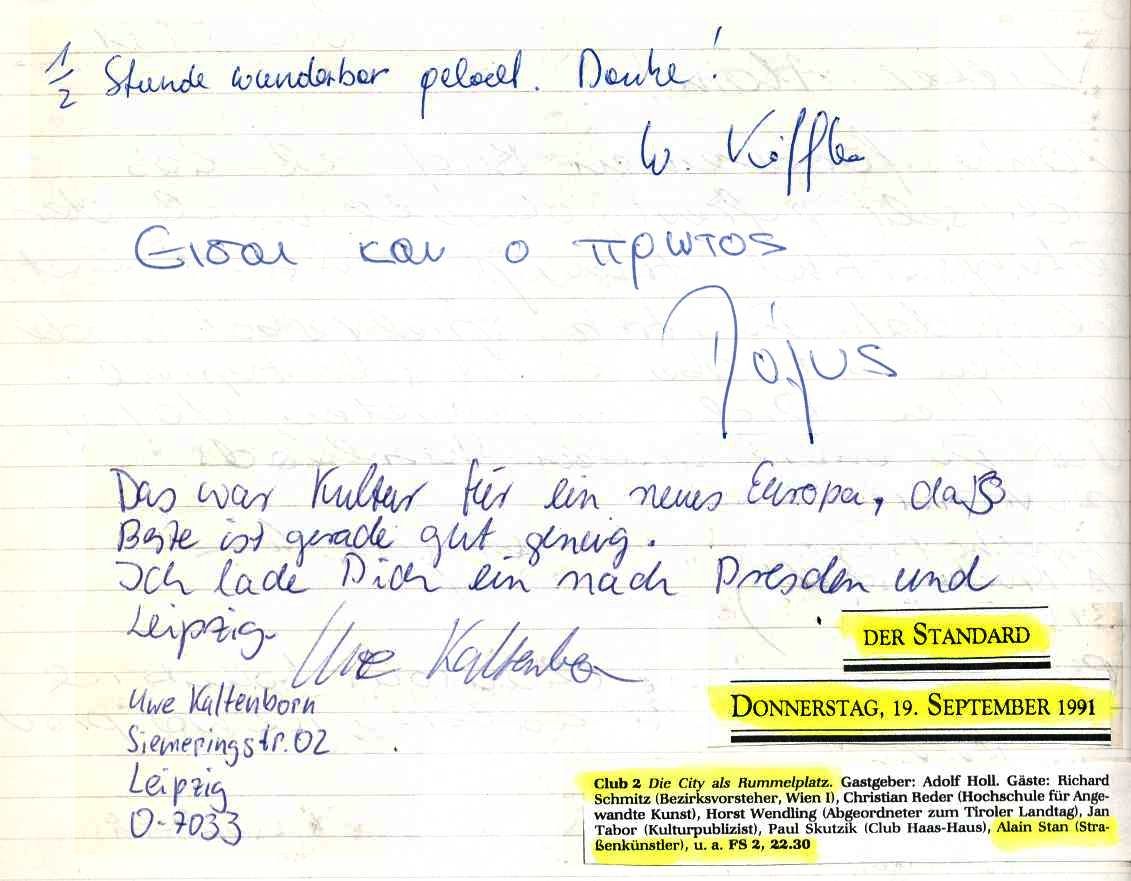 1/2 Stunde wunderbar gelacht. Danke!
W.
Εισαι και ο πρωτος
Das war Kultur für ein neues Europa, daß
Beste ist gerade gut genug.
Ich lade Dich ein nach Dresden und
Leipzig.
Uwe Kaltenborn
Uwe Kaltenborn
Siemeringstr. 02
Leipzig
O-7033
DER STANDARD
DONNERSTAG, 19. SEPTEMBER 1991
Club 2 Die City als Rummelplatz. Gastgeber: Adolf Holl. Gäste: Richard
Schmitz (Bezirksvorsteher, Wien I), Christian Reder (Hochschule für Ange-
wandte Kunst), Horst Wendling (Abgeordneter zum Tiroler Landtag), Jan
Tabor (Kulturpublizist), Paul Skutzik (Club Haas-Haus), Alain Stan (Stra-
ßenkünstler), u. a. FS 2, 22.30